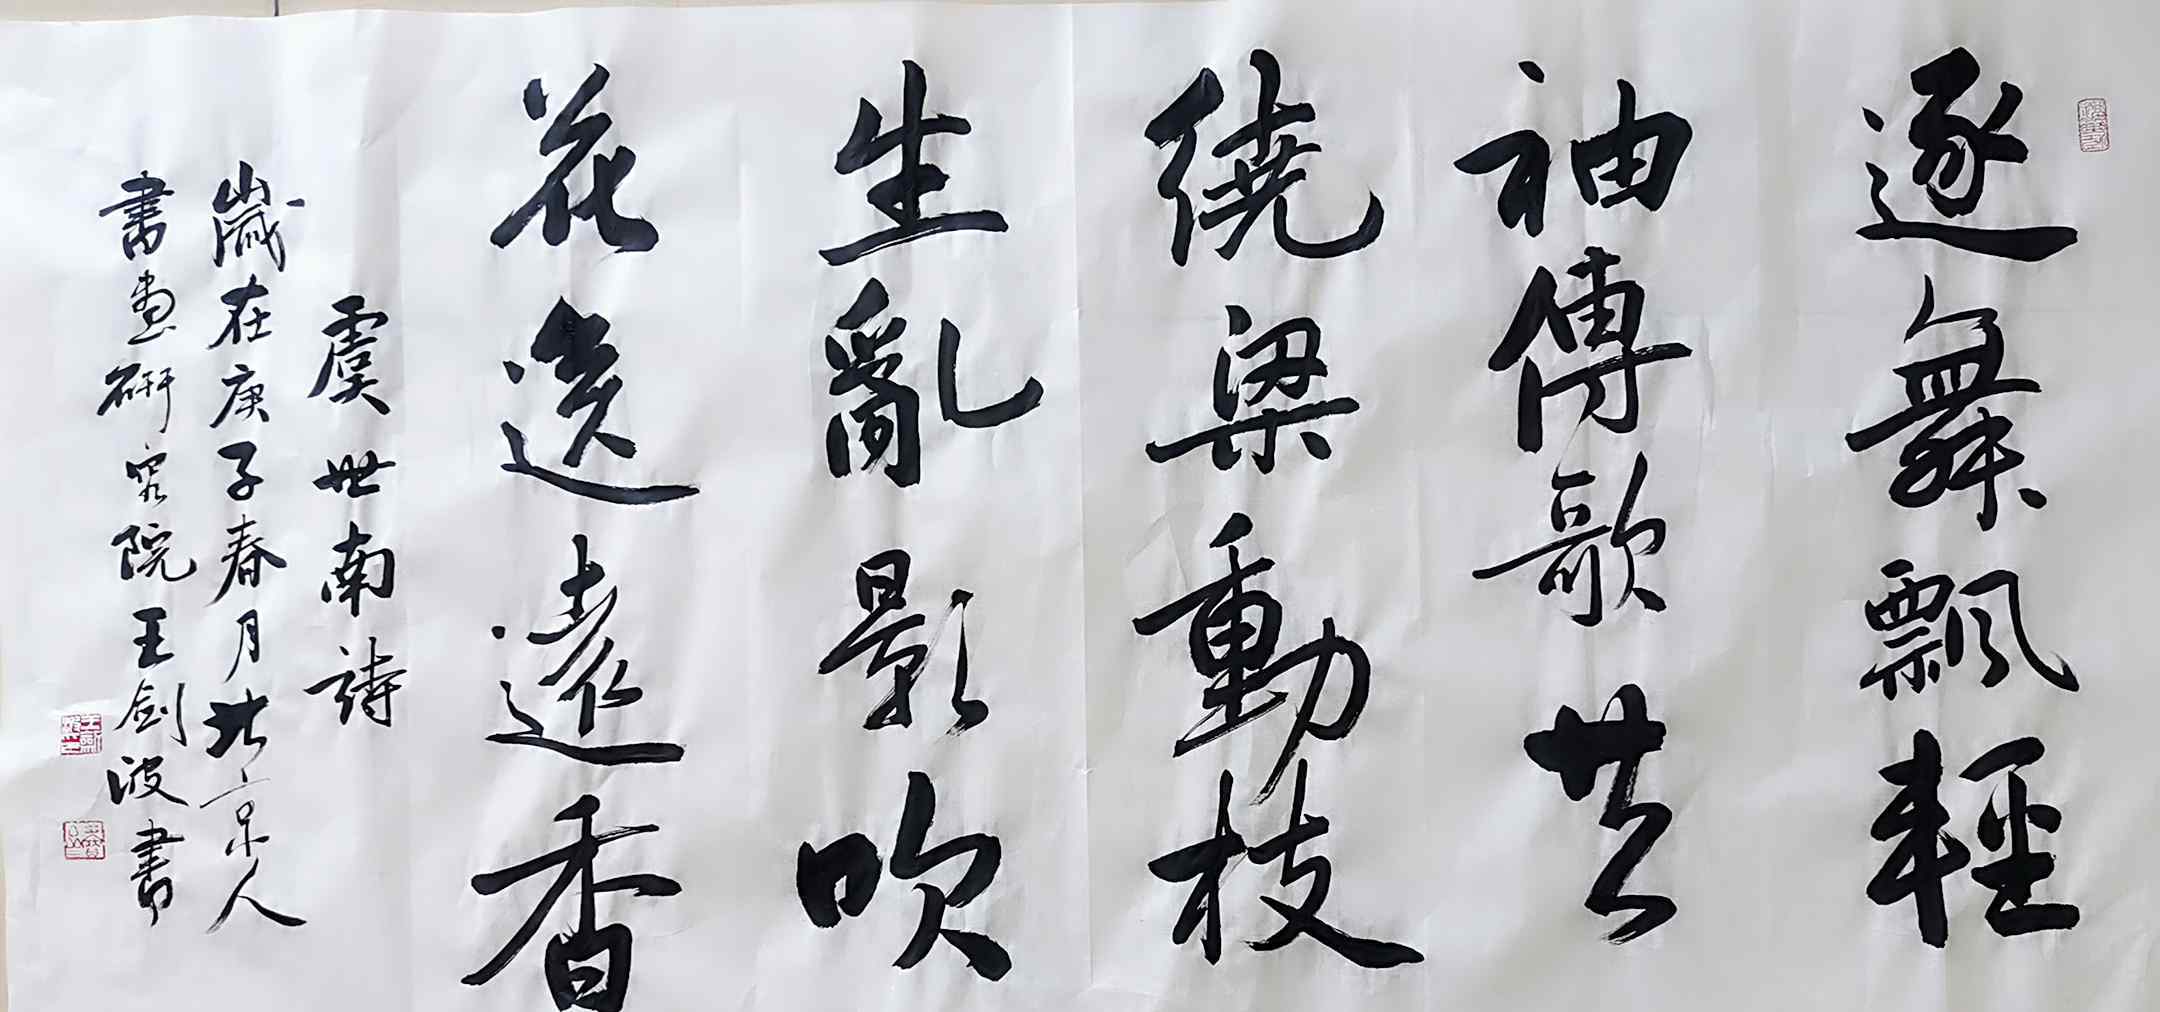 逐舞飄輕
袖傳歌共
繞梁動枝
生亂影吹
花送遠香
虞世南詩
歲在庚子春月北京人
書畫研究院王剑波書